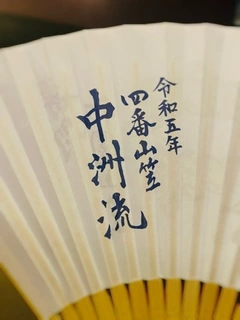 令和五年
四番山笠
中洲流